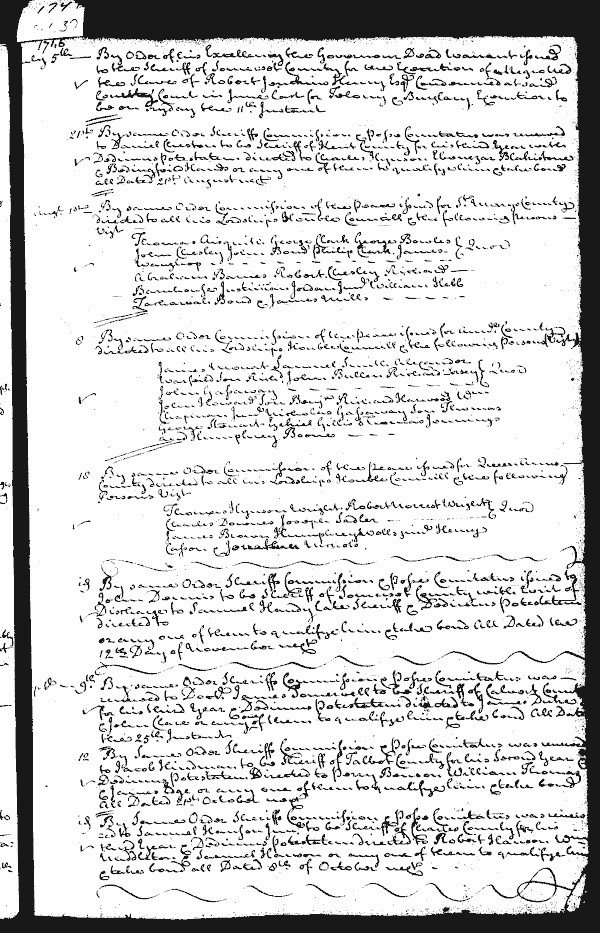 174
1746
By Order of his Excellency the Governour Dead Warrant issued
to the Sheriff of Somerset County for the Execution of a Negro
the Slave of Robert Jenckins Henry Esqr Condemned at said
County Court in June last for Felony & Burglary Execution to
be on Fryday the 11th Instant
21st By same Order Sheriffs Commission & Posse Comitatus was renewed
to Daniel Cheston to be Sheriff of Kent County for his third Year with
Dedimus Potestatem directed to Charles Hynson Ebenezar Blakistone
& Bedingfield Hands or any one of them to qualify him & take bond
all Dated 21st August next
By same Order Commission of the Peace issued for St Marys County
directed to all his Lordships Honble Councill & the following Persons
Vizt
Thomas Aisquith George Clark George Bowles
John Chesley John Bond Philip Clark James Quor
Abraham Barnes Robert Chesley Richard
Jordan Junr William Hebb
Zachariah Bond & James Mills
8 By same Order Commission of the Peace issued for County
directed to all his Lordships Honble Councill & the following Persons Vizt
James Mouat Samuel Smith Alexander
Warfield Son Richd John Bullen Richard Dorsey Quor
John Gassaway
John Howard Son Benja Richard Harwood Wm
Chapman Junr Nicholas Gassaway Son Thomas
George Steuart Ezekiel Gillis Thomas Jennings
and Humphrey Boone
18 By same Order Commission of the Peace issued for Queen Anns
County directed to all his Lordships Honble Councill & the following
Persons Vizt
Thomas Hynson Wright Robert Norrest Wright Quor
Charles Downes Joseph Sudler
James Brown Humphrey Wells junr Henry
Casson & Jonathan Nicols
By same Order Sheriff Commission & Posse Comitatus issued to
John Dennis to be Sheriff of Somerset County with Writ of
Discharge to Samuel Handy late Sheriff & Dedimus Potestatem
directed to
or any one of them to qualifye him & take bond all Dated the
12th Day of November next
9th By same Order Sheriff Commission & Posse Comitatus was
renewed to Doctr James Somervell to be Sheriff of Calvert County
for his third Year & Dedimus Potestatem directed to James Duke
& John Clare or any of them to qualify him & take bond all Dated
the 25th Instant
12 By same Order Sheriff Commission & Posse Comitatus was renewed
to Jacob Hindman to be Sheriff of Talbot County for his Second Year &
Dedimus Potestatem Directed to Perry Benson William Thomas
& James Edge or any one of them to qualify him & take bond
all Dated October next
By Same Order Sheriff Commission & Posse Comitatus was
to Samuel Hanson Junr to be Sheriff of Charles County for his
third Year & Dedimus Potestatem directed to Robert Hanson Wm
Middleton & Samuel Hanson or any one of them to qualify him
& take bond all Dated 8th of October next